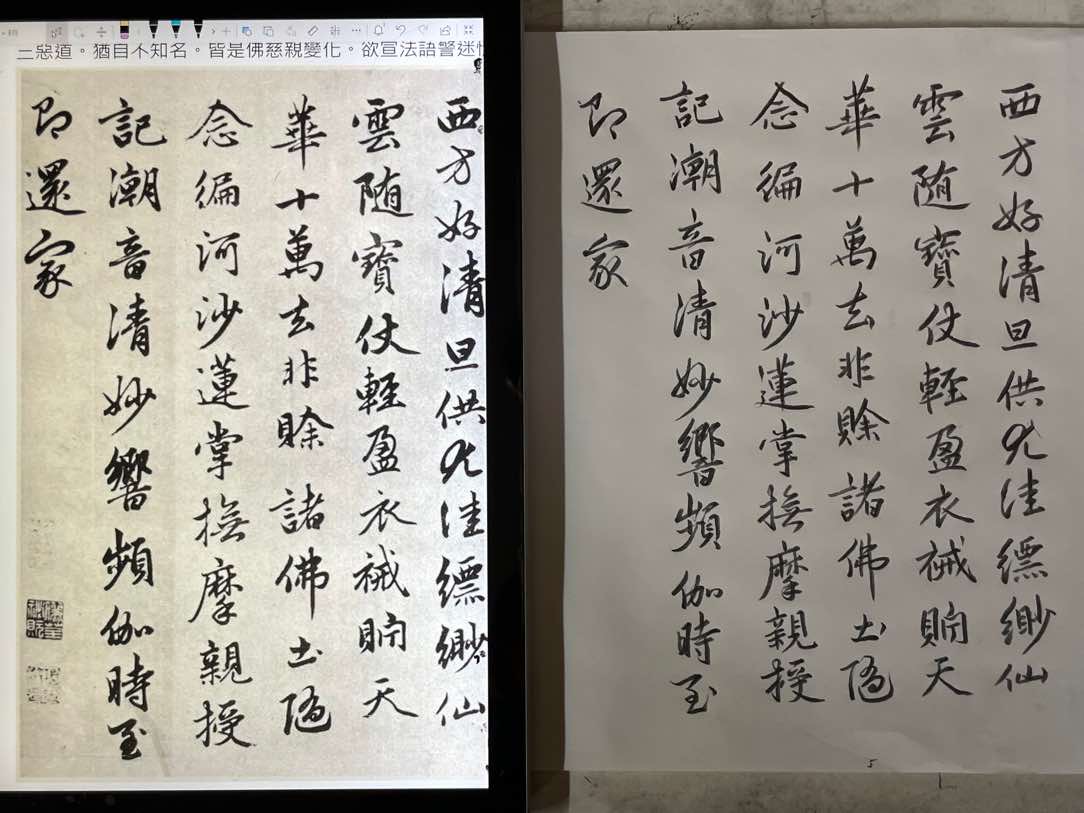 三惡道。猶自不知名。皆是佛慈親變化。欲宣法語警迷
西方好清旦供尤佳縹緲仙
雲随寶仗輕盈衣祴貯天
華十萬去非賒諸佛土隨
念徧河沙蓮掌撫摩親授
記潮音清妙響頻伽時至
即還家
西方好清旦供尤佳縹緲仙
雲随寶仗輕盈衣祴貯天
華十萬去非賒諸佛土隨
念徧河沙蓮掌撫摩親授
記潮音清妙響頻伽時至
即還家
5